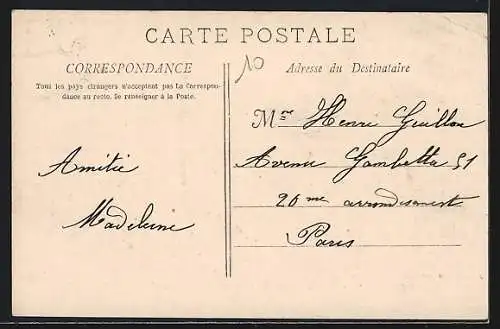 CARTE POSTALE
CORRESPONDANCE
Tous les pays étrangers n'acceptent pas la Correspon-
dance au recto. Se renseigner à la Poste.
10
Adresse du Destinataire
Amitié
Madeleine
Mme Henri Guillou
Avenue Gambetta 51
20me arrondissement
Paris